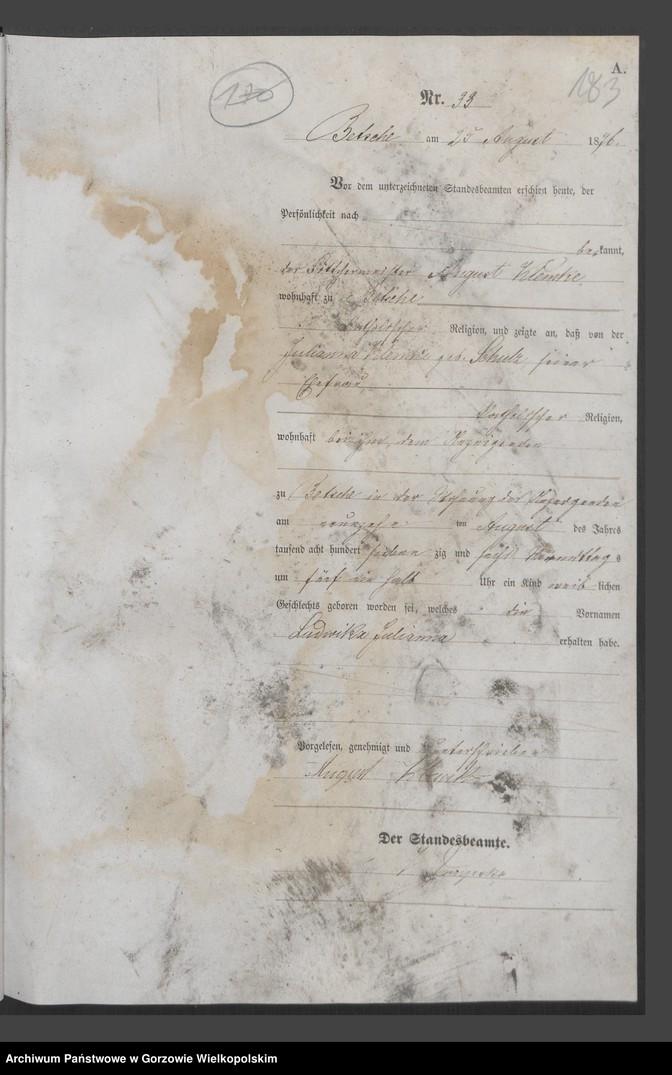 A.
183
130
Nr. 33
Betsche am 25 August 1876.
Vor dem unterzeichneten Standesbeamten erschien heute, der
Persönlichkeit nach
bekannt,
der August Klemke
wohnhaft zu Betsche
katholischer Religion, und zeigte an, daß von der
Julianna Klemke geb. Schulz, seiner
Ehefrau
katholischer Religion,
wohnhaft bei ihm, dem Anzeigenden
zu Betsche in der Wohnung des
am neunzehn ten August des Jahres
tausend acht hundert sieben zig und sechs Vormittag s
um fünf ein halb Uhr ein Kind weib lichen
Geschlechts geboren worden sei, welches die Vornamen
Ludwika Julianna
erhalten habe.
Vorgelesen, genehmigt und unterschrieben
August Klemke
Der Standesbeamte.
Archiwum Państwowe w Gorzowie Wielkopolskim